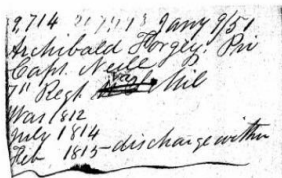 2,714 Jany 9/51
Archibald Forgey Pri
Capt. Neill
7" Regt Va Mil
War 1812
July 1814
Feb 1815 - discharge within